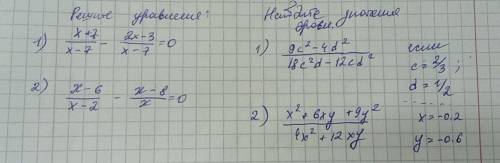 Решите уравнения:
1) \frac{x+7}{x-7} - \frac{2x-3}{x-7} = 0
2) \frac{x-6}{x-2} - \frac{x-8}{x} = 0
Найдите значения
дроби.
1) \frac{9c²-4d²}{18c²d-12cd²} если
c = 2/3 ;
d = 1/2
......
2) \frac{x²+6xy+9y²}{4x²+12xy} x=-0.2
y=-0.6